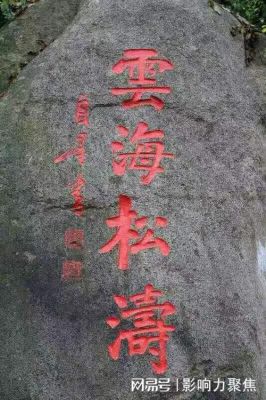 雲海松濤
网易号 | 影响力聚焦